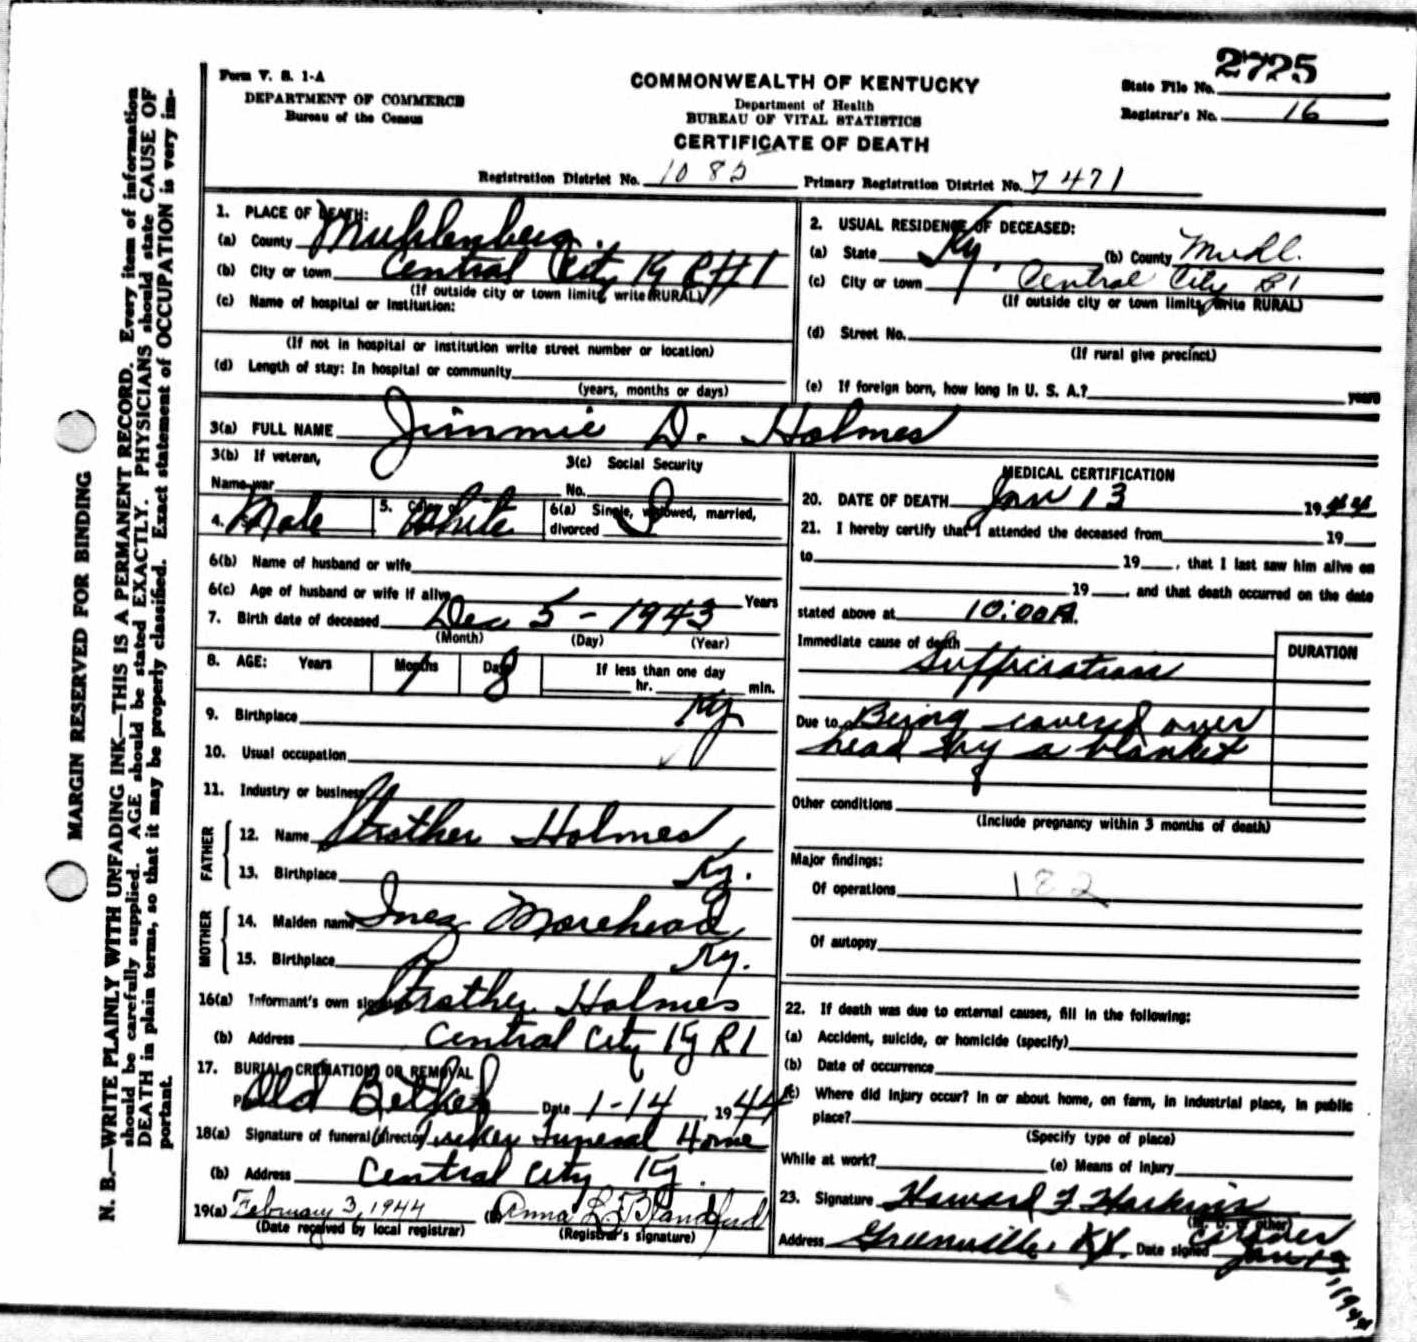 2725
Form V. S. 1-A
DEPARTMENT OF COMMERCE
Bureau of the Census
COMMONWEALTH OF KENTUCKY
Department of Health
BUREAU OF VITAL STATISTICS
CERTIFICATE OF DEATH
State File No.
Registrar's No. 16
Registration District No. 1085 Primary Registration District No. 7471
1. PLACE OF DEATH:
(a) County Muhlenberg
(b) City or town Central City Ky R#1
(If outside city or town limits, write RURAL)
(c) Name of hospital or institution:
(If not in hospital or institution write street number or location)
(d) Length of stay: In hospital or community
(years, months or days)
2. USUAL RESIDENCE OF DECEASED:
(a) State Ky. (b) County Muhl.
(c) City or town Central City R1
(If outside city or town limits, write RURAL)
(d) Street No.
(If rural give precinct)
(e) If foreign born, how long in U. S. A.? years
3(a) FULL NAME Jimmie D. Holmes
3(b) If veteran,
Name war
3(c) Social Security
No.
4. Male 5. White 6(a) Single, widowed, married,
divorced S
6(b) Name of husband or wife
6(c) Age of husband or wife if alive Years
7. Birth date of deceased Dec 5 - 1943
(Month) (Day) (Year)
8. AGE: Years Months 1 Days 8 If less than one day
hr. min.
9. Birthplace Ky
10. Usual occupation
11. Industry or business
FATHER
12. Name Strother Holmes
13. Birthplace Ky.
MOTHER
14. Maiden name Inez Morehead
15. Birthplace Ky.
16(a) Informant's own signature Strother Holmes
(b) Address Central City Ky R1
17. BURIAL, CREMATION OR REMOVAL
Old Bethel Date 1-14, 1944
18(a) Signature of funeral director Tucker Funeral Home
(b) Address Central City Ky.
19(a) February 3, 1944 (b) Anna L. Blandford
(Date received by local registrar) (Registrar's signature)
MEDICAL CERTIFICATION
20. DATE OF DEATH Jan 13 1944
21. I hereby certify that I attended the deceased from 19
to 19 , that I last saw him alive on
19 , and that death occurred on the date
stated above at 10:00A.
Immediate cause of death
Suffication
DURATION
Due to Being covered over
head by a blanket
Other conditions
(Include pregnancy within 3 months of death)
Major findings:
Of operations 182
Of autopsy
22. If death was due to external causes, fill in the following:
(a) Accident, suicide, or homicide (specify)
(b) Date of occurrence
(c) Where did injury occur? In or about home, on farm, in industrial place, in public
place?
(Specify type of place)
While at work? (e) Means of injury
23. Signature Howard F. Harkins
(M. D. or other) Coroner
Address Greenville, Ky. Date signed Jan 13, 1944
MARGIN RESERVED FOR BINDING
N. B.—WRITE PLAINLY WITH UNFADING INK—THIS IS A PERMANENT RECORD. Every item of information
should be carefully supplied. AGE should be stated EXACTLY. PHYSICIANS should state CAUSE OF
DEATH in plain terms, so that it may be properly classified. Exact statement of OCCUPATION is very im-
portant.